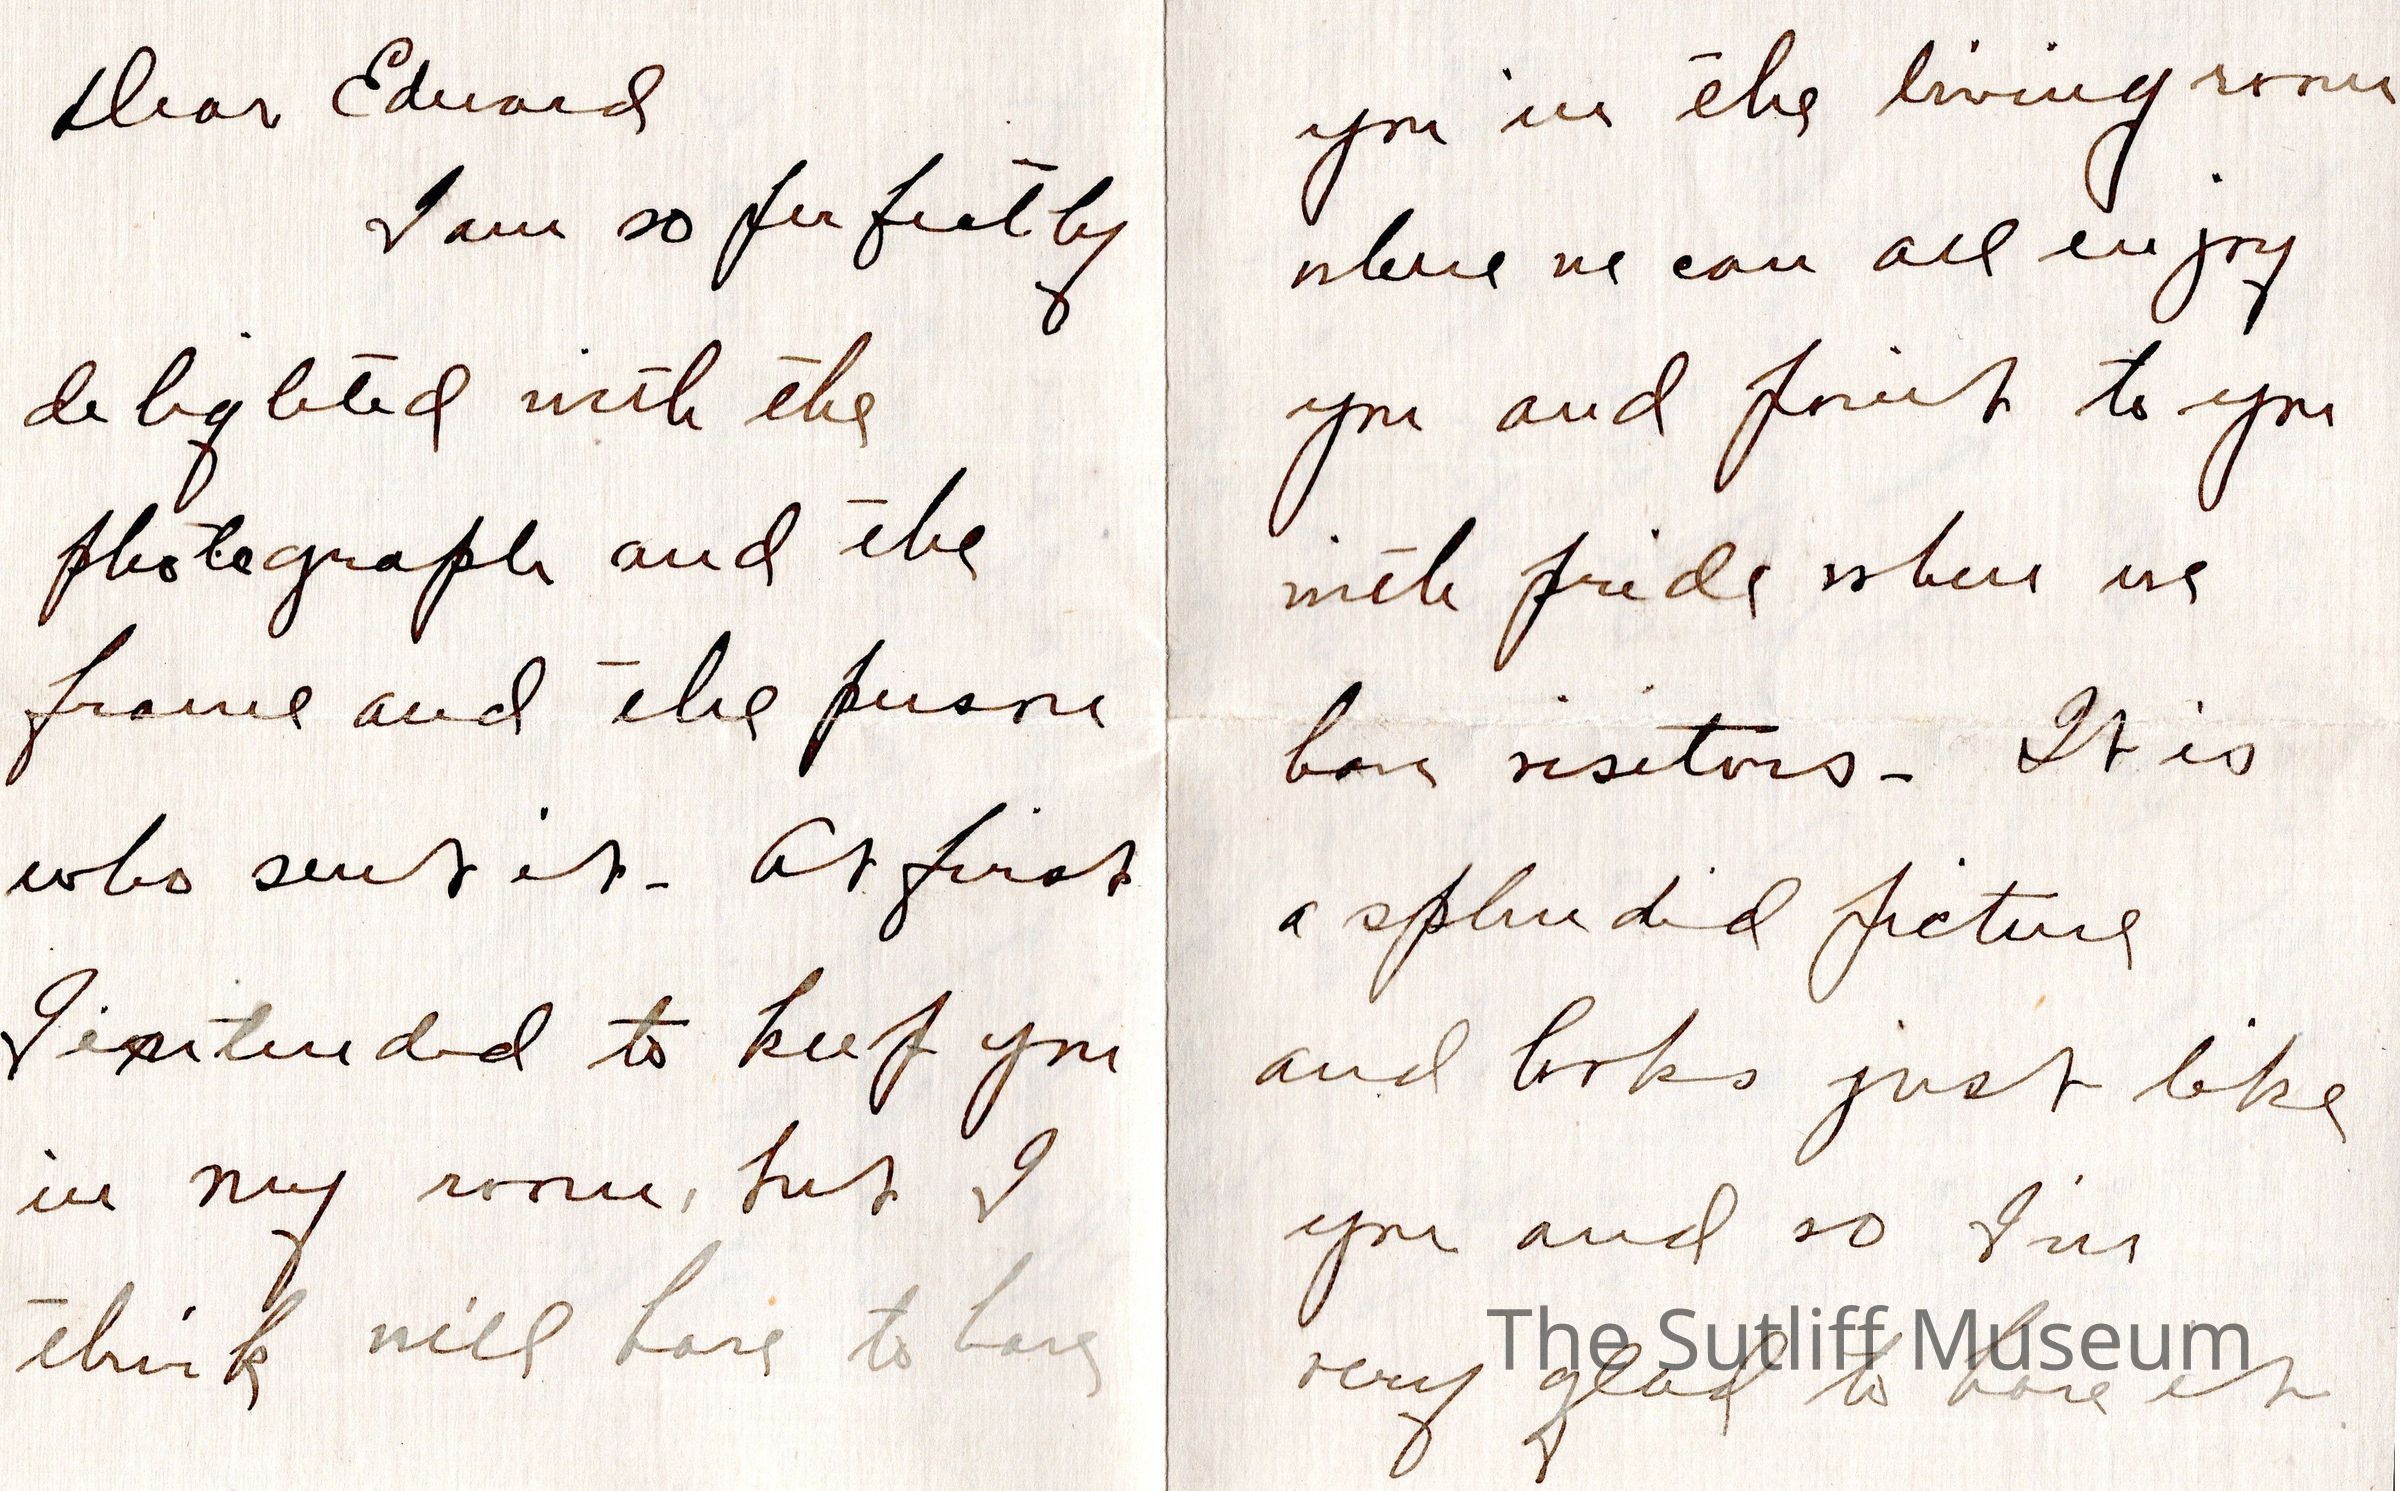 Dear Edward
I am so perfectly
delighted with the
photograph and the
frame and the person
who sent it - At first
I intended to keep you
in my room, but I
think will have to have
you in the living room
where we can all enjoy
you and point to you
with pride when we
have visitors - It is
a splendid picture
and looks just like
you and so I'm
very glad to have it
The Sutliff Museum